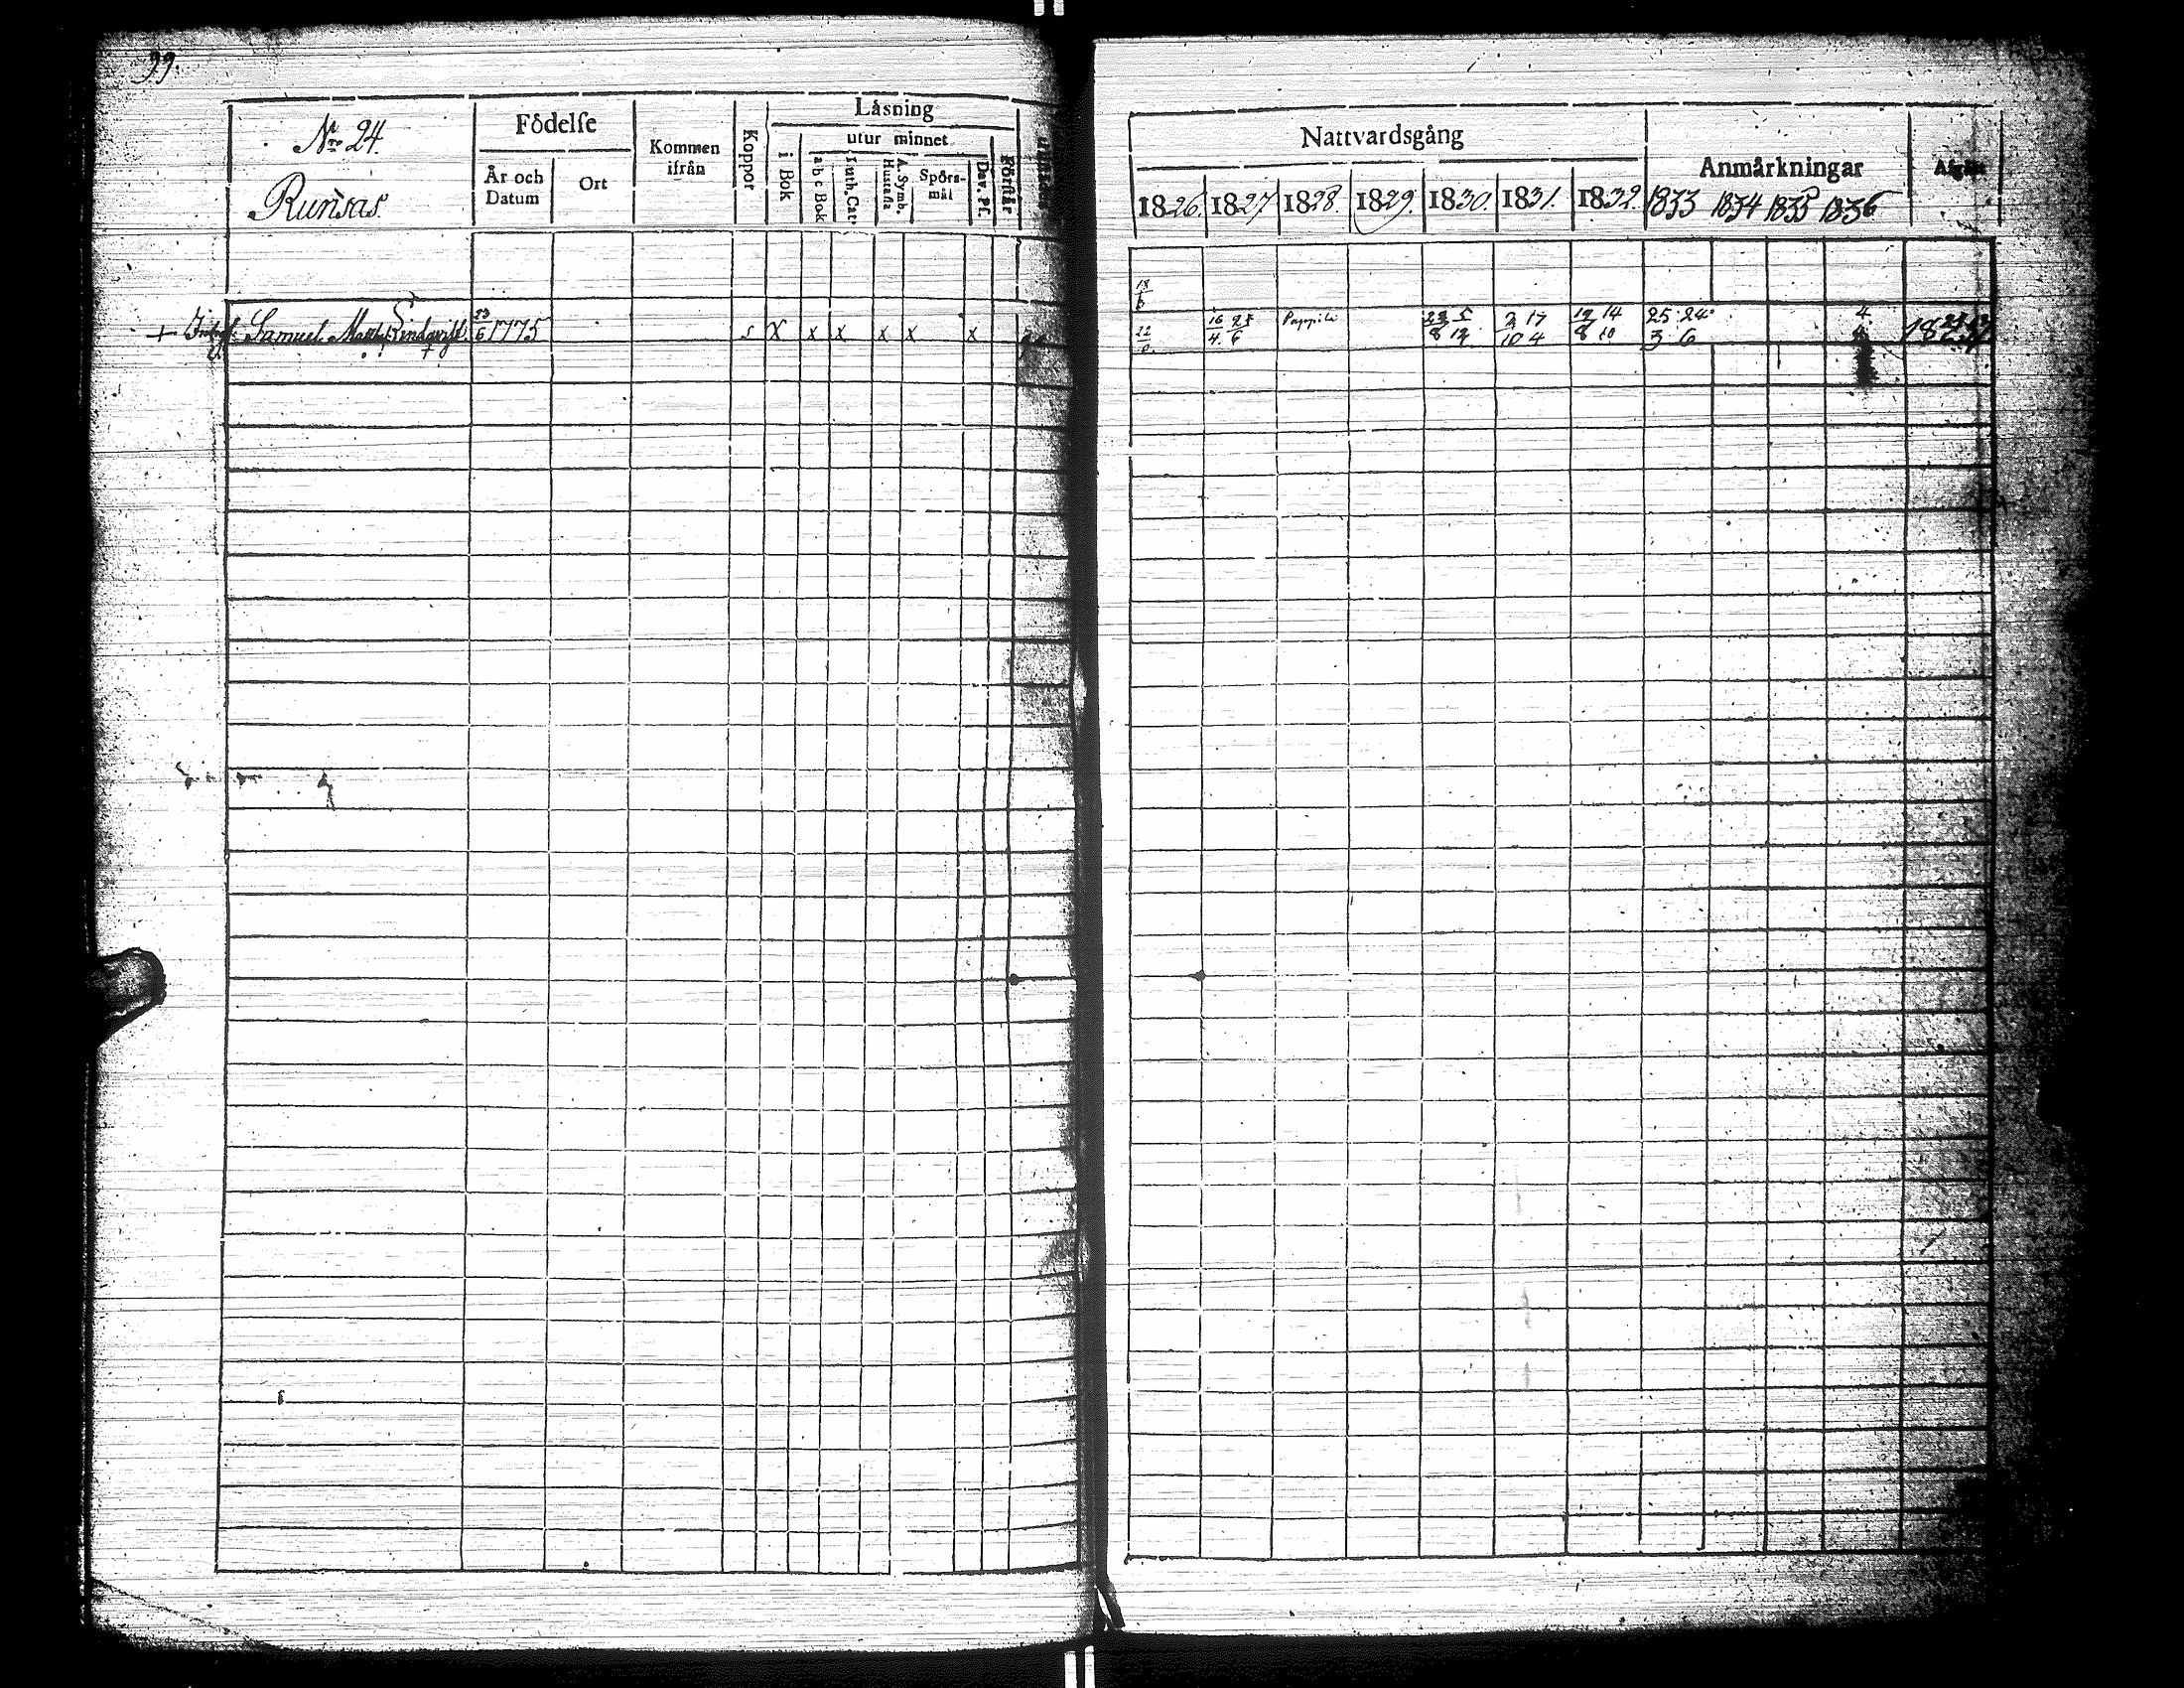 99.
No 24.
Runsas.
Födelse
År och Datum
Ort
Kommen ifrån
Koppor
Läsning
utur minnet
i Bok
a b c Bok
Luth. Cat.
A. Symb. Hustafla
Spörsmål
Dav. Ps.
Förstår
+ Samuel Matths Lindqvist. 23/6 1775 s X x x x x x
Nattvardsgång
Anmärkningar
Afgått
1826. 1827 1828. 1829. 1830. 1831. 1832. 1833 1834 1835 1836
18/6
16/4. 6 23/8 5/12 2/10 17/4 12/8 14/10 25/3 24/6 4/4